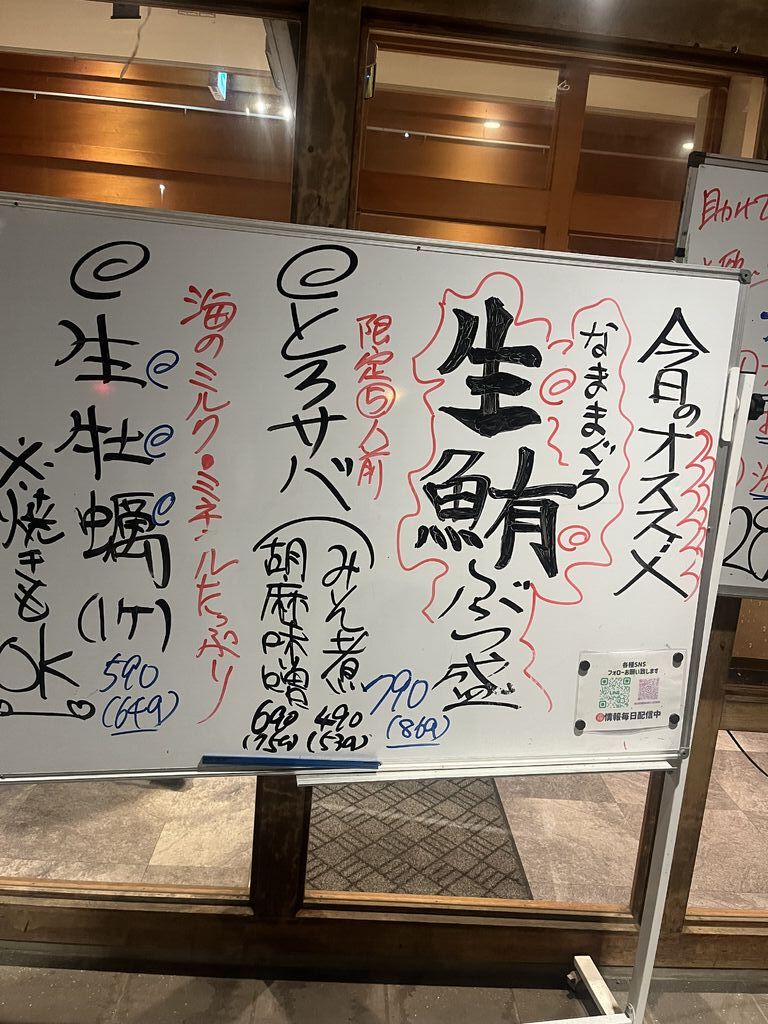 今日のオススメ
なままぐろ
生鮪ぶつ盛
790
(869)
限定⑤人前
@とろサバ
みそ煮
490
(539)
胡麻味噌
690
(759)
海のミルク・ミネラルたっぷり
@生牡蠣(1ケ)
590
(649)
※焼きもOK
各種SNS
フォローお願い致します
情報毎日配信中
助けて
28